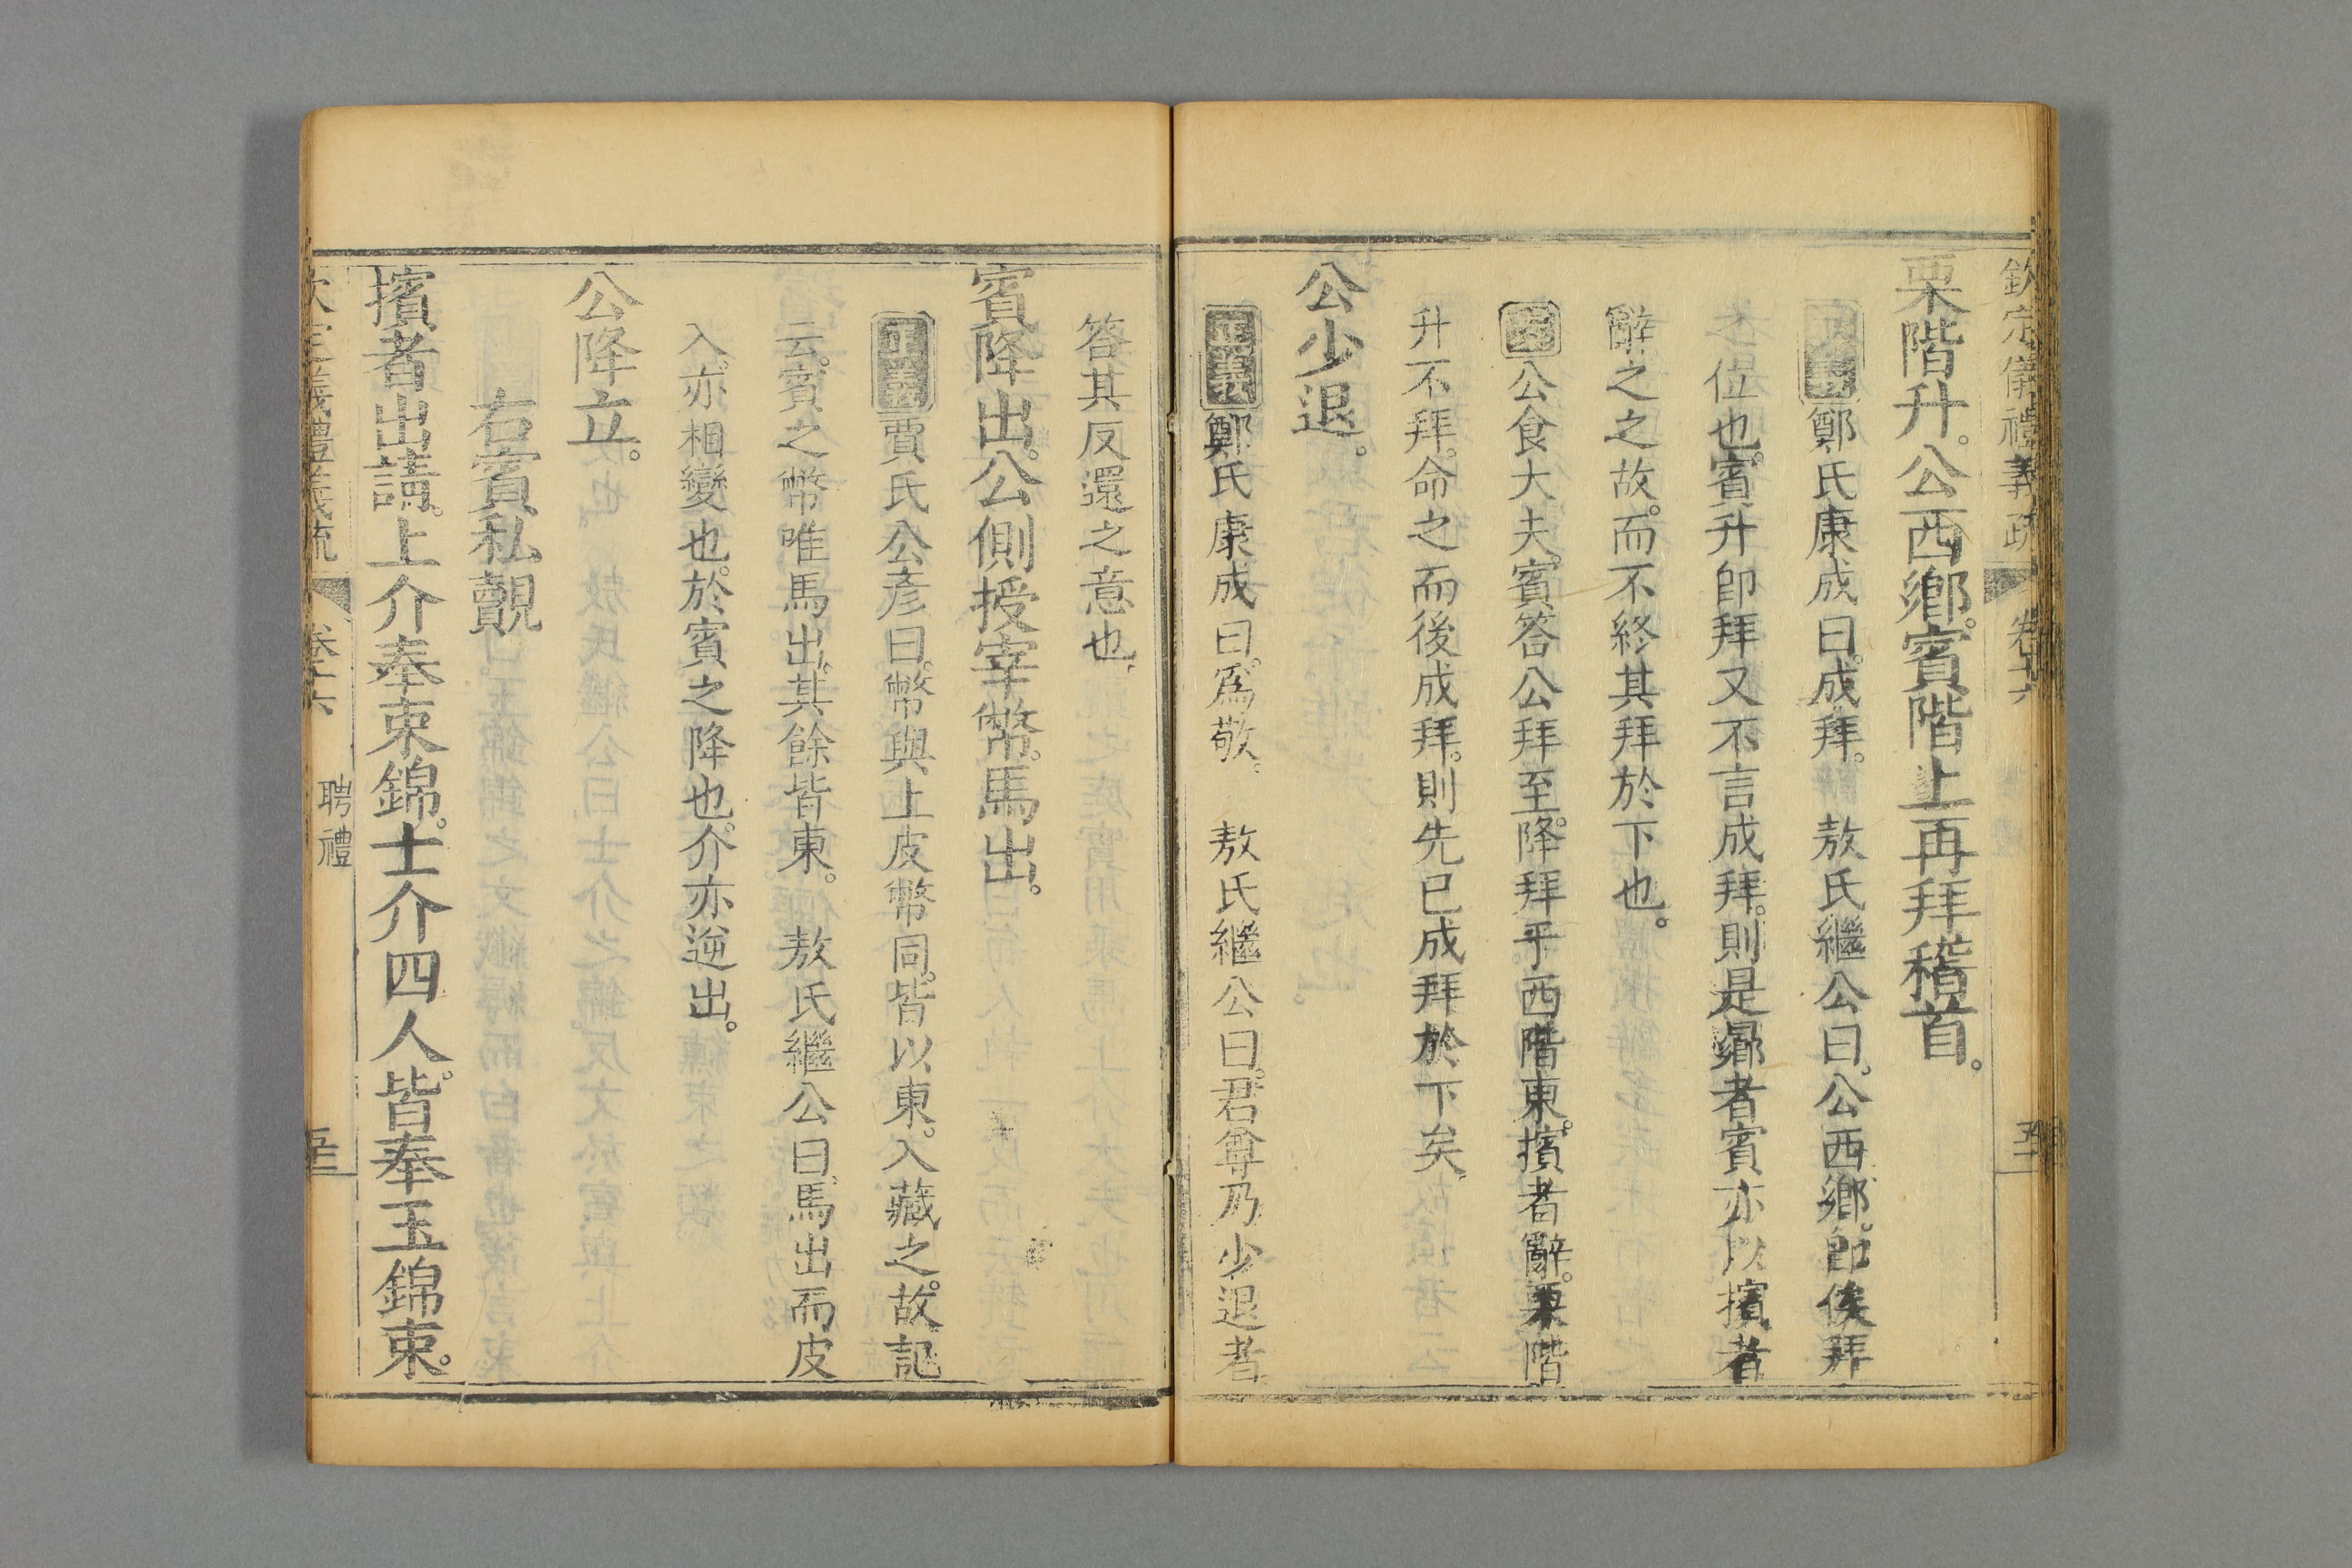 欽定儀禮義疏 卷十六
栗階升。公西鄉。賓階上再拜稽首。
正義鄭氏康成曰。成拜。 敖氏繼公曰。公西鄉。即俟拜
之位也。賓升即拜又不言成拜。則是鄉者賓亦以擯者
辭之之故。而不終其拜於下也。
公食大夫。賓答公拜至。降拜乎西階東。擯者辭。栗階
升不拜。命之而後成拜。則先已成拜於下矣。
公少退。
正義鄭氏康成曰。爲敬。 敖氏繼公曰。君尊乃少退者。
答其反還之意也。
賓降出。公側授宰幣。馬出。
正義賈氏公彥曰。幣與上皮幣同。皆以東。入藏之。故記
云。賓之幣唯馬出。其餘皆東。 敖氏繼公曰。馬出而皮
入。亦相變也。於賓之降也。介亦逆出。
公降立。
右賓私覿
擯者出請。上介奉束錦。士介四人。皆奉玉錦束。
欽定儀禮義疏 卷十六 聘禮